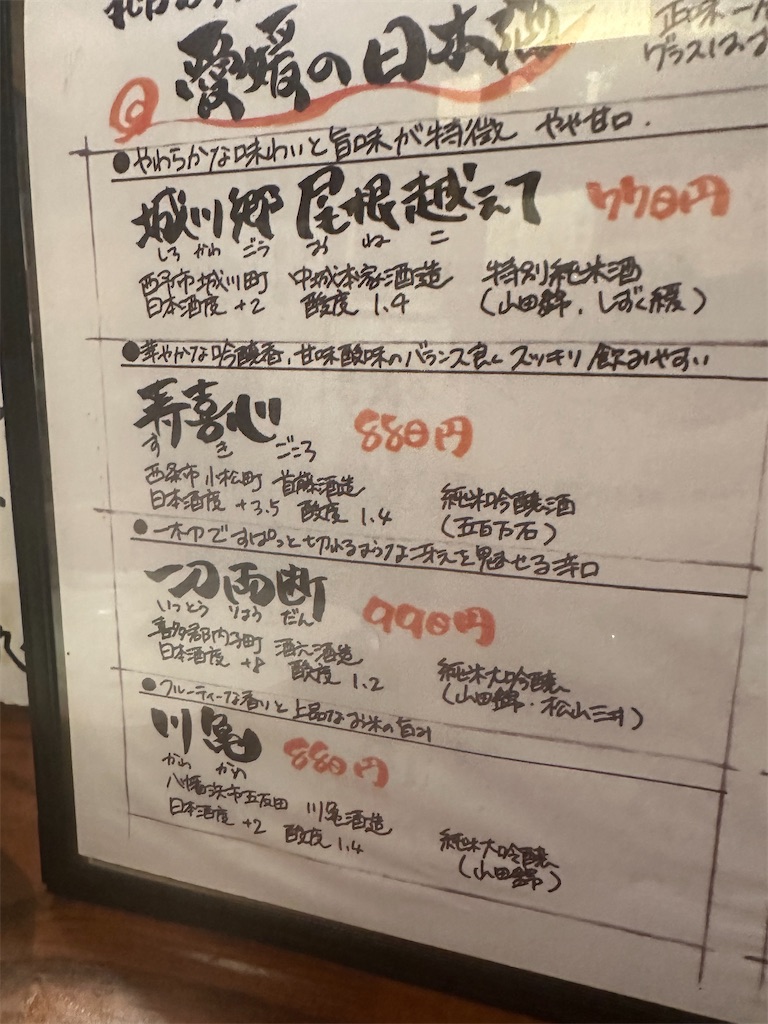 愛媛の日本酒
正味一
グラスは
●やわらかな味わいと旨味が特徴 やや甘口.
城川郷 尾根越えて 770円
しろ かわ ごう お ね こ
西予市城川町 中城本家酒造 特別純米酒
日本酒度 +2 酸度 1.4 (山田錦, しずく媛)
●華やかな吟醸香、甘味酸味のバランス良く スッキリ飲みやすい
寿喜心 880円
す き ごころ
西条市小松町 首藤酒造 純米吟醸酒
日本酒度 +3.5 酸度 1.4 (五百万石)
●一太刀ですぱっと切れるような冴えを魅せる辛口
一刀両断 990円
いっとう りょう だん
喜多郡内子町 酒六酒造 純米大吟醸
日本酒度 +8 酸度 1.2 (山田錦・松山三井)
●フルーティーな香りと上品なお米の旨み
川亀 880円
かわ かめ
八幡浜市五反田 川亀酒造 純米大吟醸
日本酒度 +2 酸度 1.4 (山田錦)